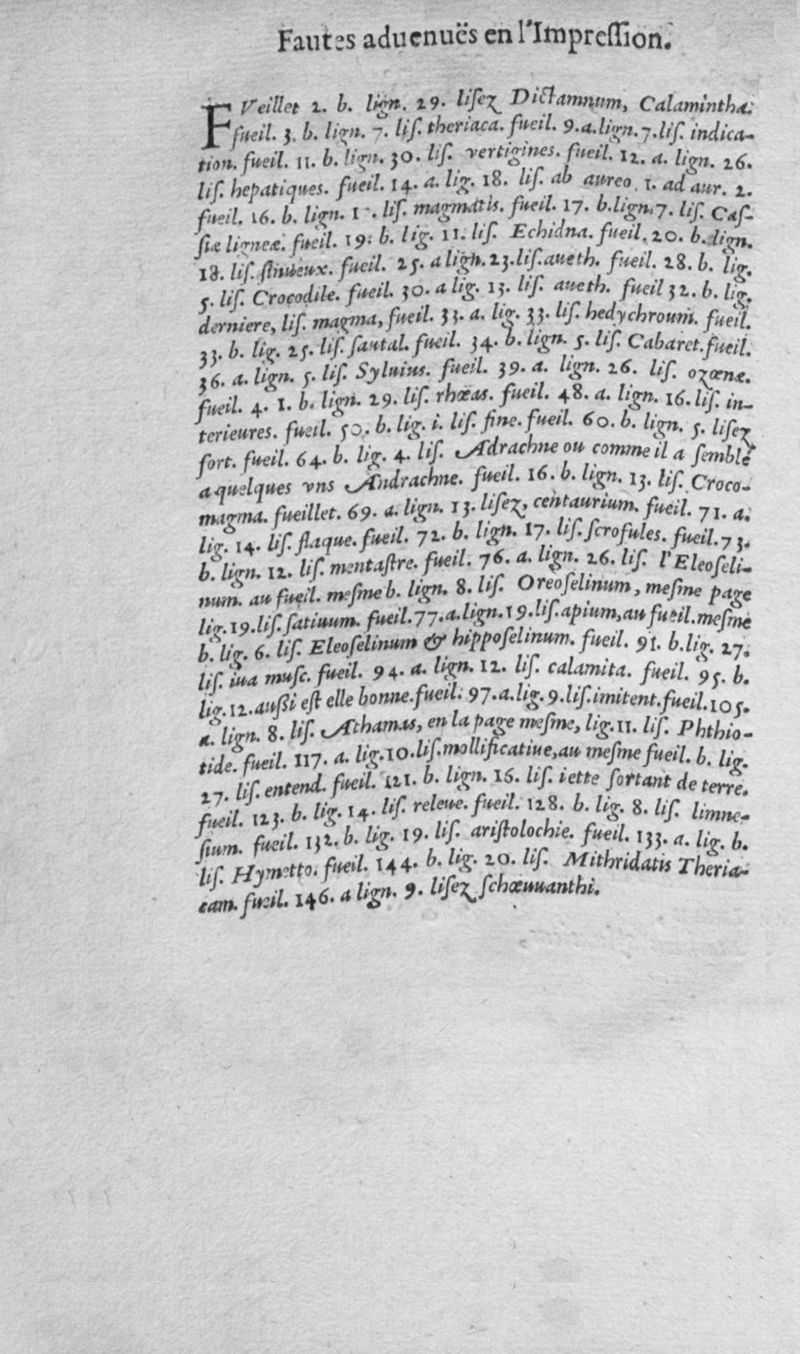 Fautes aduenuës en l'Impreſſion.
FVeillet 2. b. lign. 29. liſez Dictamnum, Calaminthæ:
fueil. 3. b. lign. 7. liſ. theriaca. fueil. 9.a.lign.7.liſ. indica-
tion. fueil. 11. b. lign. 30. liſ. vertigines. fueil. 12. a. lign. 26.
liſ. hepatiques. fueil. 14. a. lig. 18. liſ. ab aureo. 1. ad aur. 2.
fueil. 16. b. lign. liſ. magmatis. fueil. 17. b.lign.7. liſ. Caſ-
ſiæ ligneæ. fueil. 19. b. lig. 11. liſ. Echidna. fueil. 20. b. lign.
18. liſ. ſinueux. fueil. 25. a lign.23.liſ.aueth. fueil. 28. b. lig.
5. liſ. Crocodile. fueil. 30. a lig. 13. liſ. aueth. fueil 32. b. lig.
derniere, liſ. magma, fueil. 33. a. lig. 33. liſ. hedychroum. fueil.
33. b. lig. 25. liſ. ſautal. fueil. 34. b. lign. 5. liſ. Cabaret.fueil.
36. a. lign. 5. liſ. Syluius. fueil. 39. a. lign. 26. liſ. ozœnæ.
fueil. 4. 1. b. lign. 29. liſ. rhœas. fueil. 48. a. lign. 16. liſ. in-
terieures. fueil. 50. b. lig. i. liſ. fine. fueil. 60. b. lign. 5. liſez
fort. fueil. 64. b. lig. 4. liſ. Adrachne ou comme il a ſemblé
a quelques vns Andrachne. fueil. 16. b. lign. 13. liſ. Croco-
magma. fueillet. 69. a. lign. 13. liſez, centaurium. fueil. 71. a.
lig. 14. liſ. flaque. fueil. 72. b. lign. 17. liſ. ſcrofules. fueil.73.
b. lign. 12. liſ. mentaſtre. fueil. 76. a. lign. 26. liſ. l'Eleoſeli-
num. au fueil. meſme b. lign. 8. liſ. Oreoſelinum, meſme page
lig.19.liſ. ſatiuum. fueil.77.a.lign.19.liſ.apium,au fueil.meſme
b. lig. 6. liſ. Eleoſelinum & hippoſelinum. fueil. 91. b.lig. 27.
liſ. iua muſc. fueil. 94. a. lign. 12. liſ. calamita. fueil. 95. b.
lig.12.außi eſt elle bonne.fueil. 97.a.lig.9.liſ.imitent.fueil.105.
a. lign. 8. liſ. Athamas, en la page meſme, lig.11. liſ. Phthio-
tide. fueil. 117. a. lig.10.liſ.mollificatiue,au meſme fueil. b. lig.
27. liſ. entend. fueil. 121. b. lign. 16. liſ. iette ſortant de terre.
fueil. 123. b. lig. 14. liſ. releue. fueil. 128. b. lig. 8. liſ. limne-
ſium. fueil. 132. b. lig. 19. liſ. ariſtolochie. fueil. 133. a. lig. b.
liſ. Hymetto. fueil. 144. b. lig. 20. liſ. Mithridatis Theria-
cam. fueil. 146. a lign. 9. liſez ſchœuuanthi.